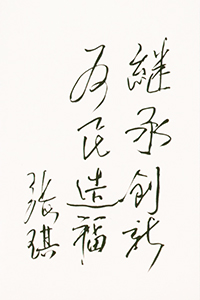 継承创新
为民造福
张琪